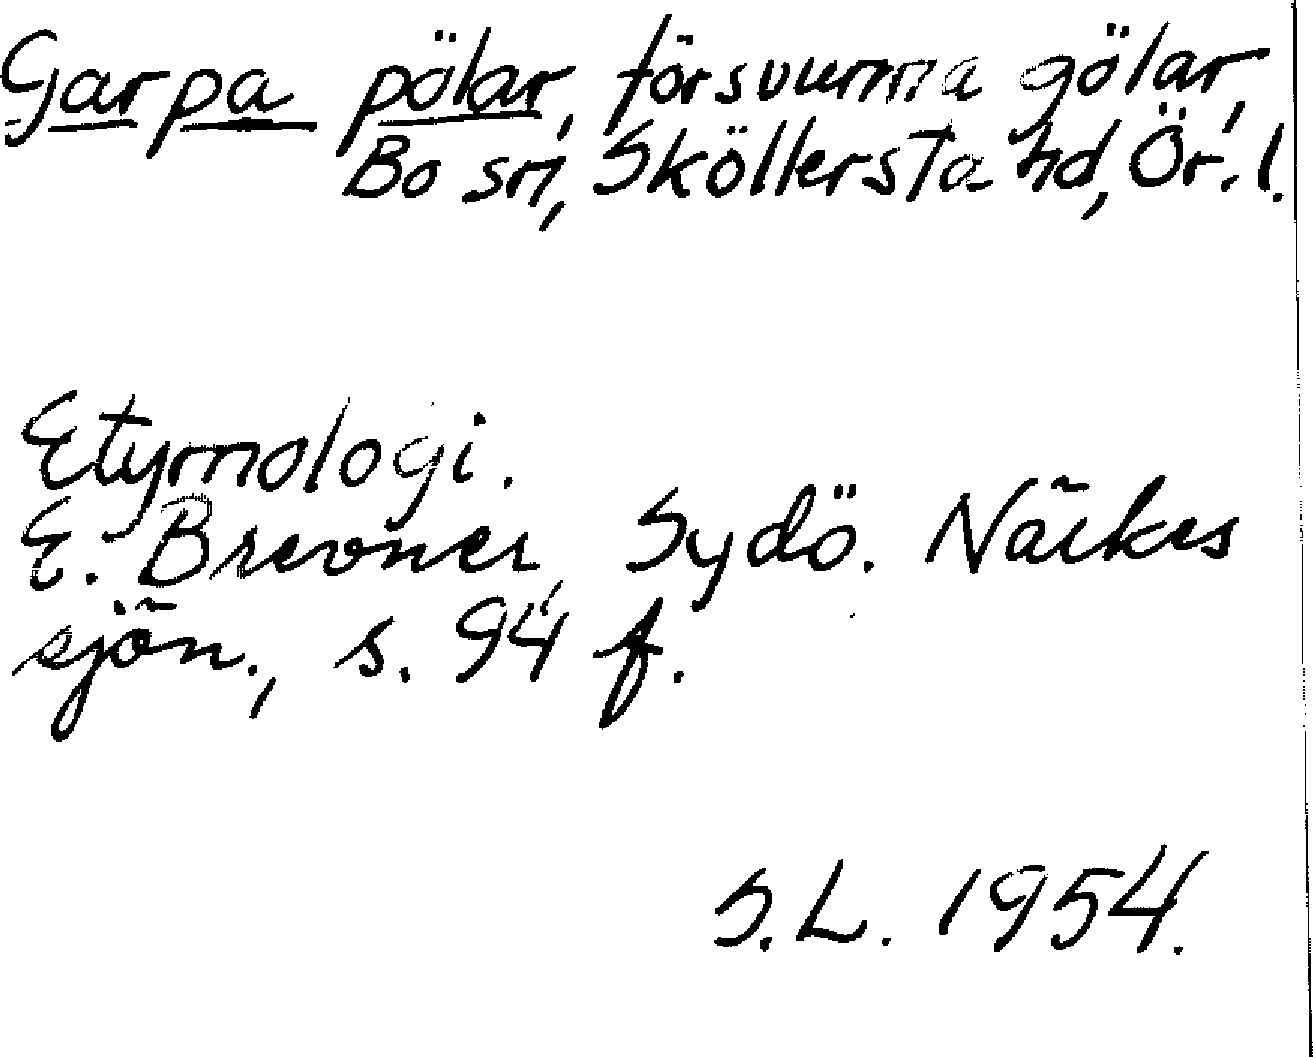 Garpa pölar, försvunna gölar,
Bo sn, Sköllersta hd, Ör. l.
Etymologi.
E. Brevner, Sydö. Närkes
sjön., s. 94 f.
S.L. 1954.